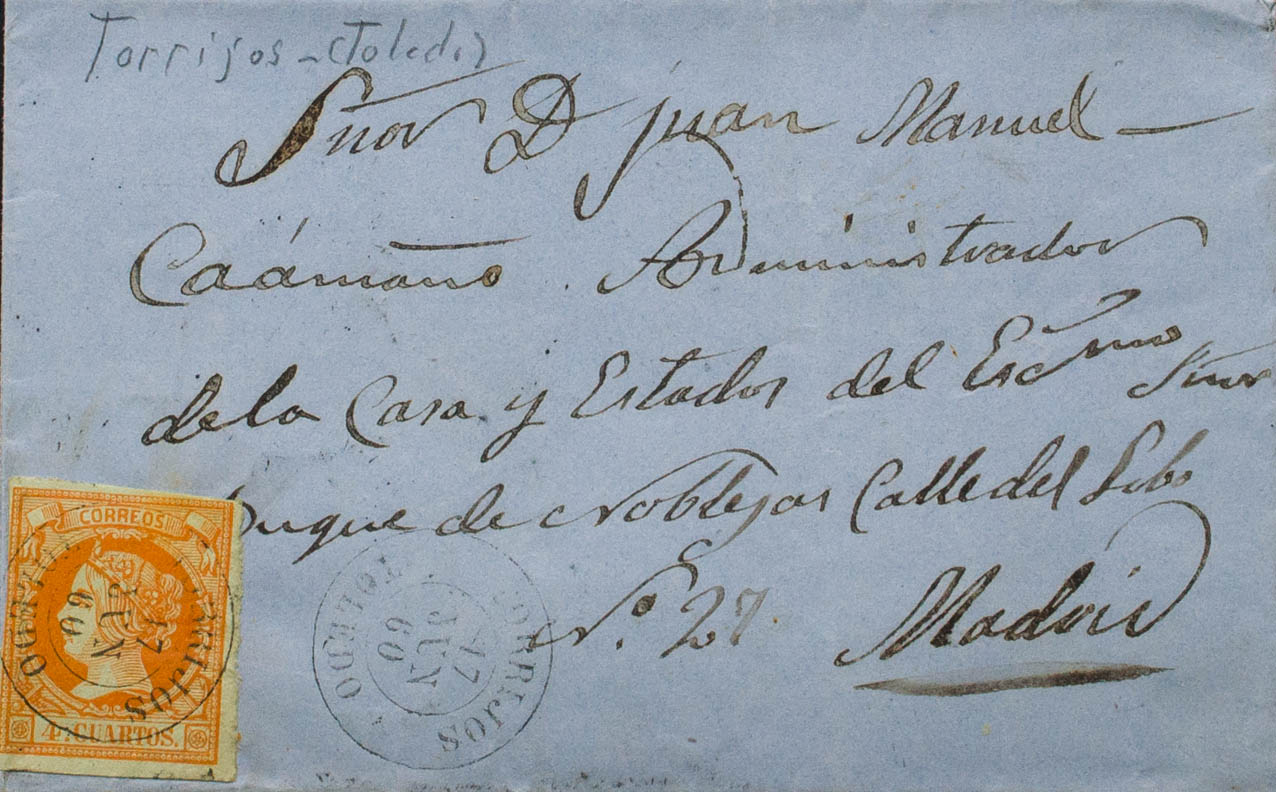 Torrijos - (Toledo)
Señor D Juan Manuel
Caámaño Administrador
de la Casa y Estados del Escmo Señor
Duque de Noblejas Calle del Lobo
Nº. 27 Madrid
CORREOS
4 CUARTOS.
TORRIJOS
17 JUN 60
TOLEDO
TORRIJOS
17 JUN 60
TOLEDO